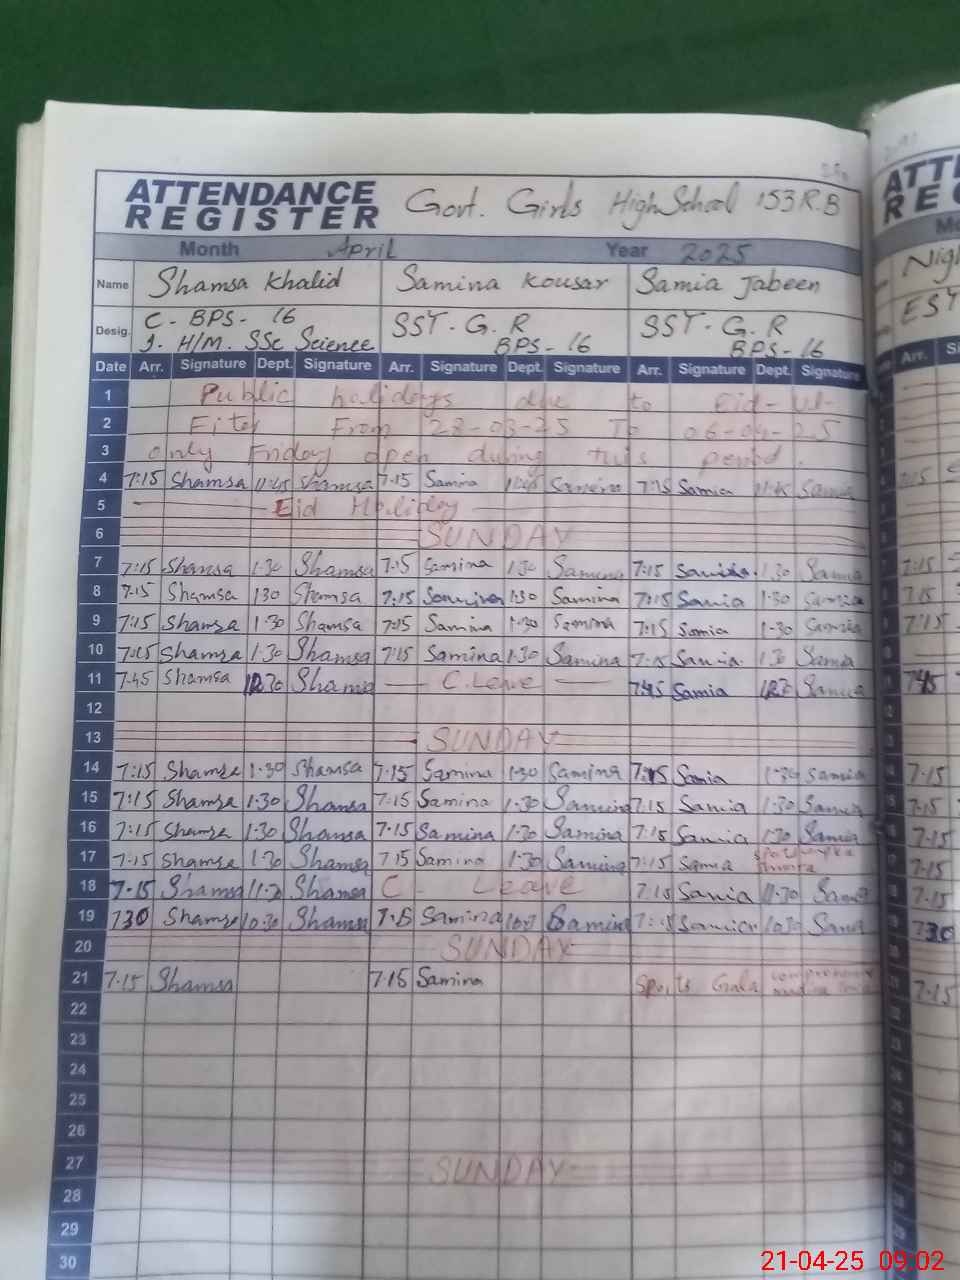 ATTENDANCE REGISTER Govt. Girls High School 153 R.B
Month April Year 2025
Name Shamsa Khalid Samina Kousar Samia Jabeen
Desig. C- BPS- 16 SST- G. R SST- G. R
I. H/M. SSc Science BPS- 16 BPS- 16
Date Arr. Signature Dept. Signature Arr. Signature Dept. Signature Arr. Signature Dept. Signature
1 Public holidays due to Eid-ul-
2 From 28-03-25 To 06-04-25
3 only Friday open during this period.
4 7:15 Shamsa 11:45 Shamsa 7:15 Samina 11:45 Samina 7:15 Samia 11:45 Samia
5 Eid Holiday
6 SUNDAY
7 7:15 Shamsa 1:30 Shamsa 7:15 Samina 1:30 Samina 7:15 Samia 1:30 Samia
8 7:15 Shamsa 1:30 Shamsa 7:15 Samina 1:30 Samina 7:15 Samia 1:30 Samia
9 7:15 Shamsa 1:30 Shamsa 7:15 Samina 1:30 Samina 7:15 Samia 1:30 Samia
10 7:15 Shamsa 1:30 Shamsa 7:15 Samina 1:30 Samina 7:15 Samia 1:30 Samia
11 7:45 Shamsa 12:30 Shamsa C. Leave 7:45 Samia Samia
12
13 SUNDAY
14 7:15 Shamsa 1:30 Shamsa 7:15 Samina 1:30 Samina 7:15 Samia 1:30 Samia
15 7:15 Shamsa 1:30 Shamsa 7:15 Samina 1:30 Samina 7:15 Samia 1:30 Samia
16 7:15 Shamsa 1:30 Shamsa 7:15 Samina 1:30 Samina 7:15 Samia 1:30 Samia
17 7:15 Shamsa 1:30 Shamsa 7:15 Samina 1:30 Samina 7:15 Samia
18 7:15 Shamsa 11:30 Shamsa C- Leave 7:15 Samia 11:30 Samia
19 7:30 Shamsa 10:30 Shamsa Samina Samina Samia 10:30 Samia
20 SUNDAY
21 7:15 Shamsa 7:15 Samina Sports Gala
22
23
24
25
26
27 SUNDAY
28
29
30
21-04-25 09:02